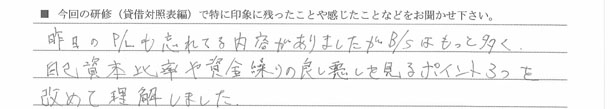 ■ 今回の研修（貸借対照表編）で特に印象に残ったことや感じたことなどをお聞かせ下さい。
昨日のP/Lも忘れてる内容がありましたがB/Sはもっと多く、
自己資本比率や資金繰りの良し悪しを見るポイント3つを
改めて理解しました。